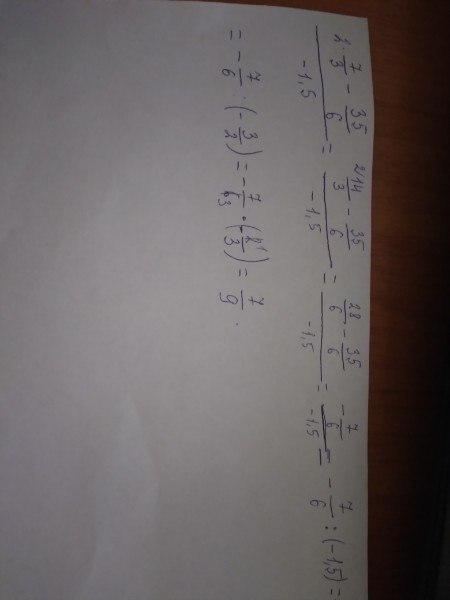 2·7/3 - 35/6 / -1,5 = 2/14/3 - 35/6 / -1,5 = 28/6 - 35/6 / -1,5 = -7/6 / -1,5 = -7/6 : (-1,5) =
= -7/6 : (-3/2) = -7/6 3 · (-2 1/3) = 7/9.